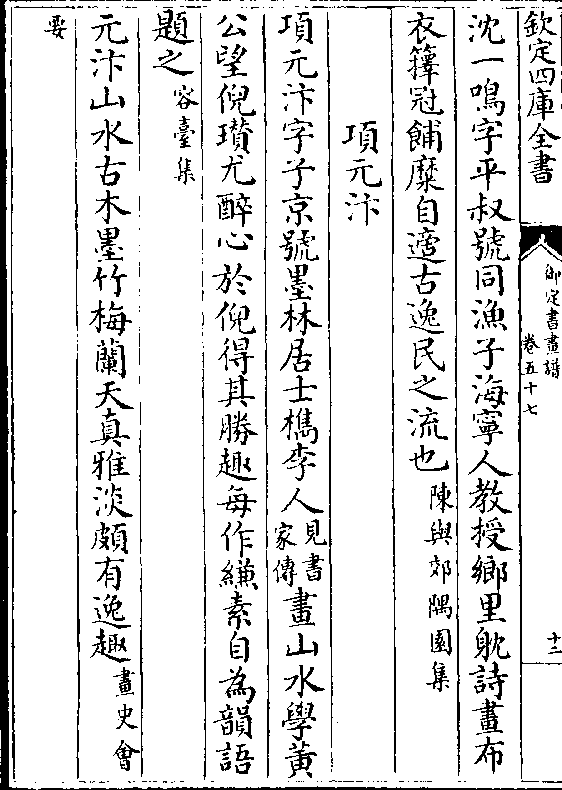 欽定四庫全書
御定書畫譜
卷五十七
十二
沈一鳴字平叔號同漁子海寧人教授鄉里躭詩畫布
衣籜冠餔糜自適古逸民之流也陳與郊隅園集
項元汴
項元汴字子京號墨林居士檇李人見書家傳畫山水學黄
公望倪瓚尤醉心於倪得其勝趣每作縑素自為韻語
題之容臺集
元汴山水古木墨竹梅蘭天真雅淡頗有逸趣畫史會
要